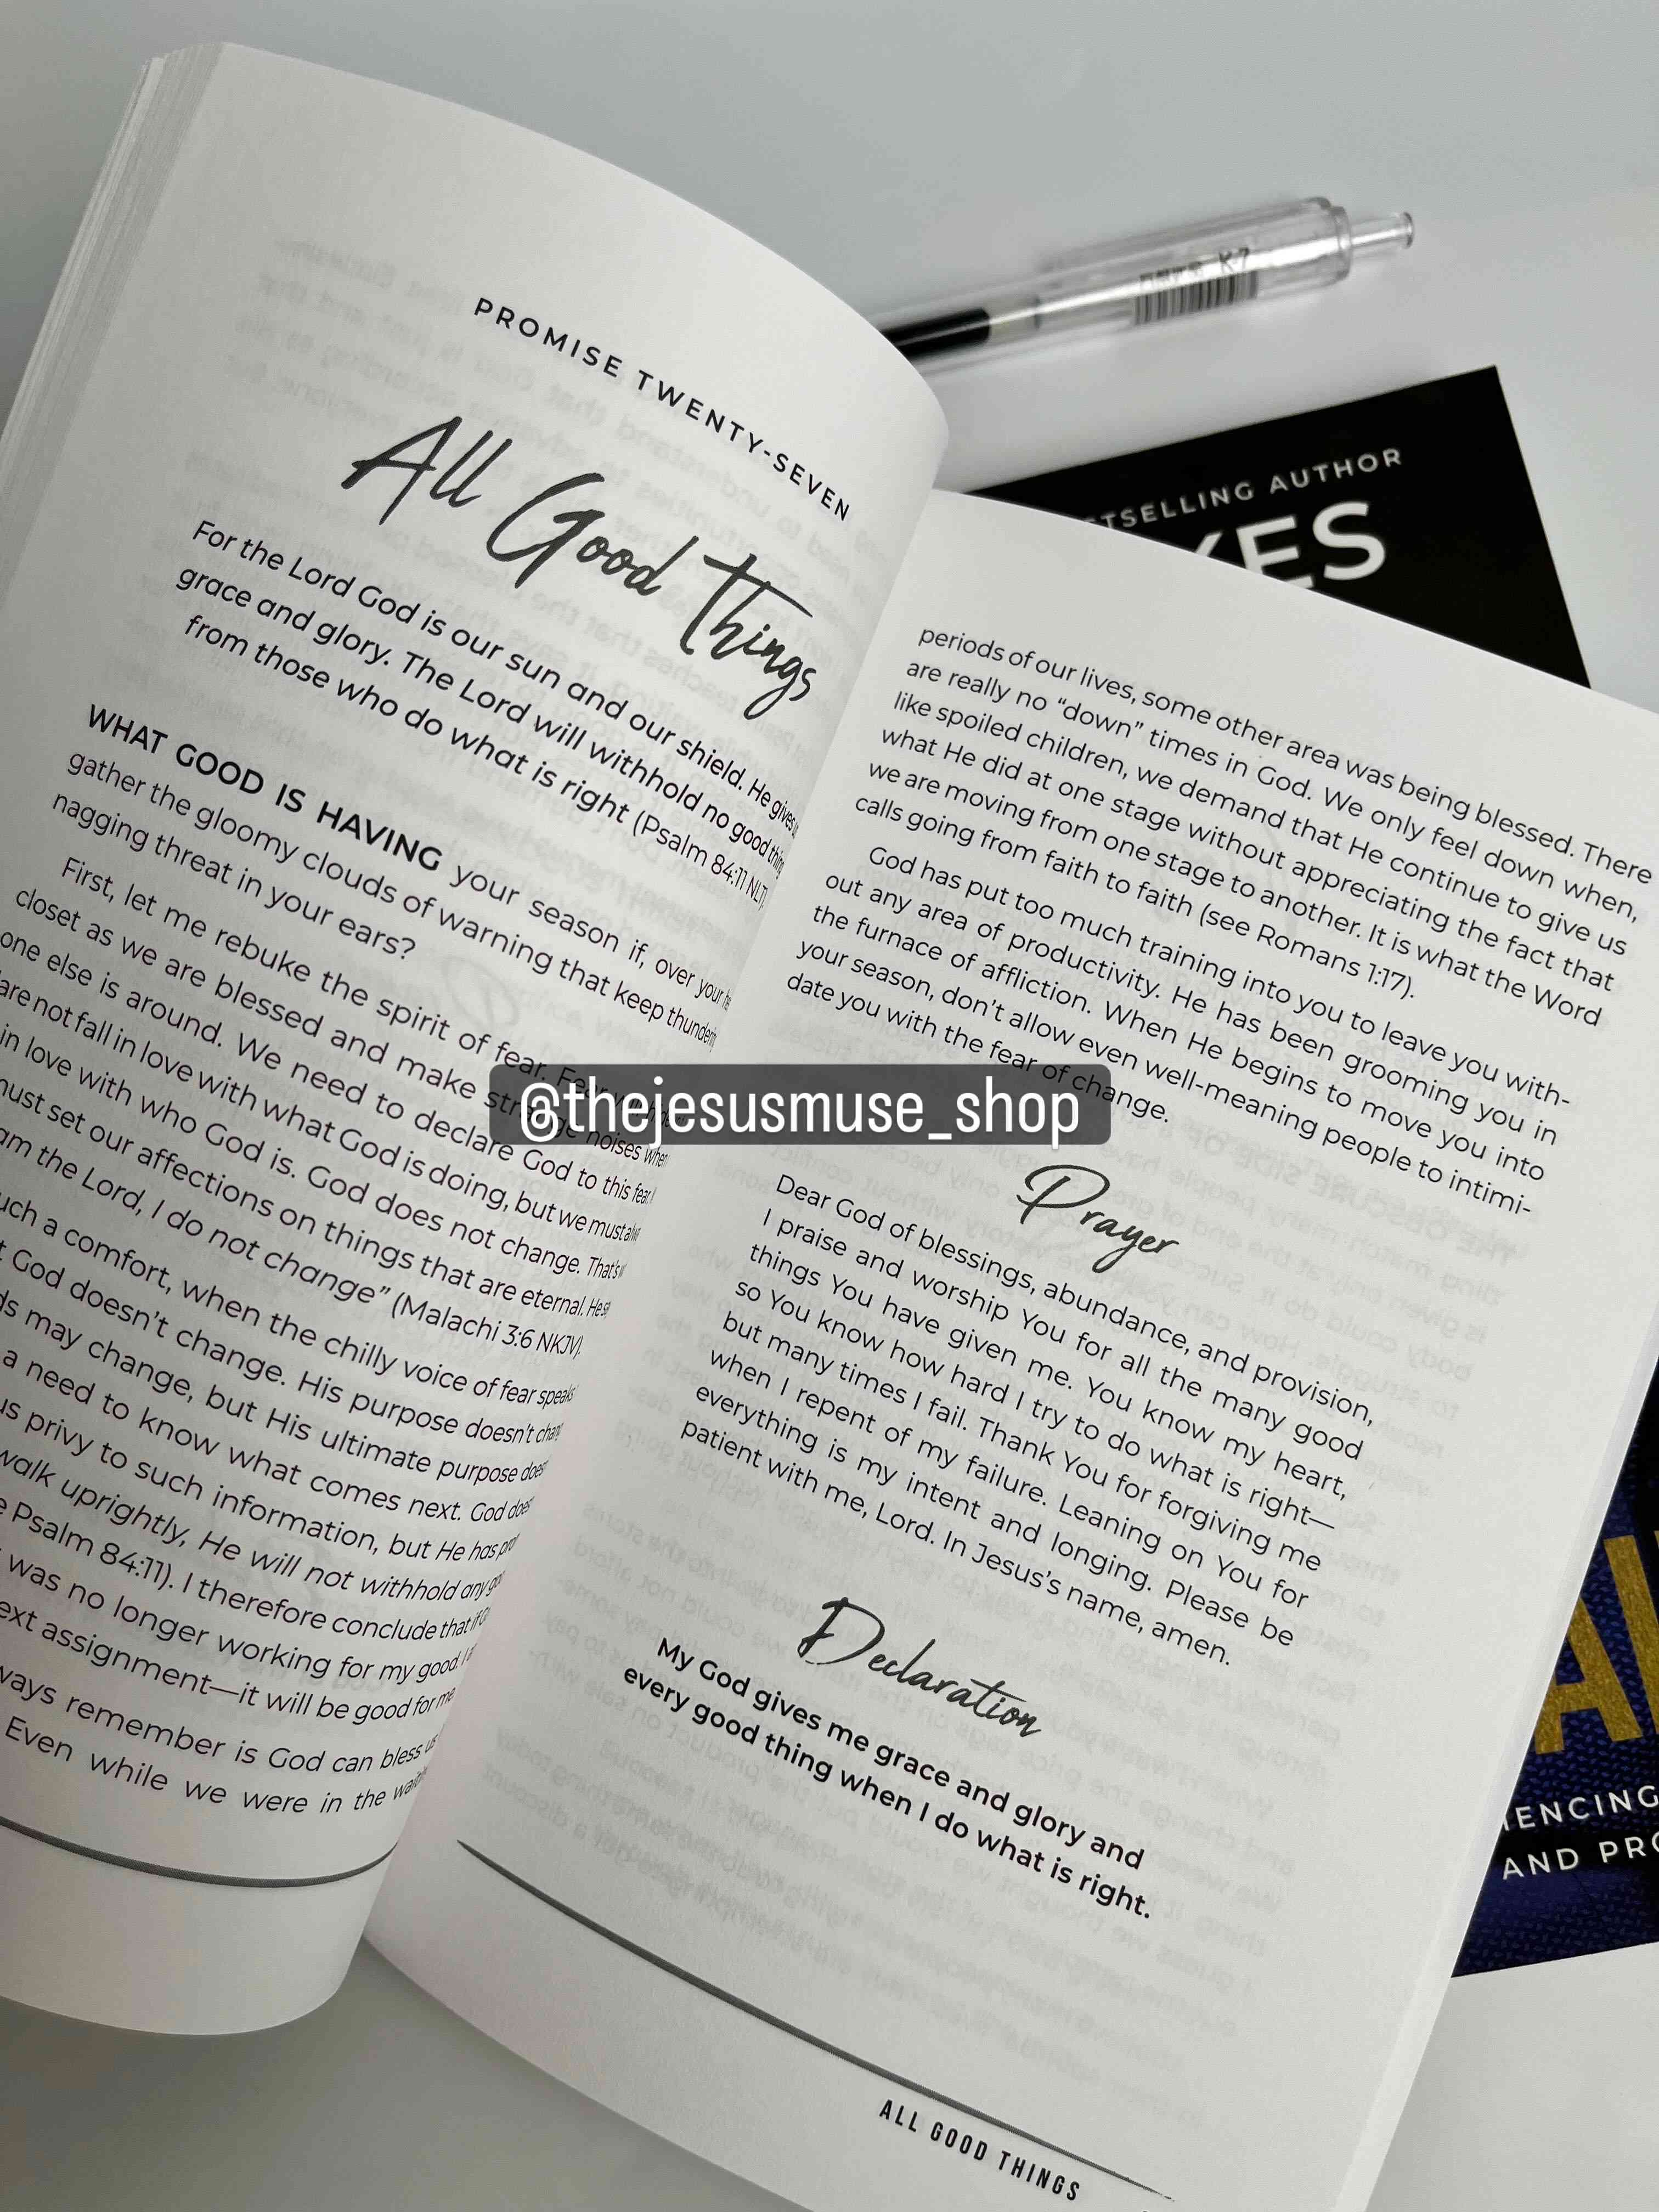 PROMISE TWENTY-SEVEN
All Good Things
For the Lord God is our sun and our shield. He gives us
grace and glory. The Lord will withhold no good thing
from those who do what is right (Psalm 84:11 NLT).
WHAT GOOD IS HAVING your season if, over your
gather the gloomy clouds of warning that keep thundering
nagging threat in your ears?
First, let me rebuke the spirit of fear. Fear will
closet as we are blessed and make strange noises when
one else is around. We need to declare God to this fear.
are not fall in love with what God is doing, but we must
in love with who God is. God does not change. That's
must set our affections on things that are eternal. He
am the Lord, I do not change" (Malachi 3:6 NKJV).
such a comfort, when the chilly voice of fear speaks
God doesn't change. His purpose doesn't
may change, but His ultimate purpose
a need to know what comes next. God
us privy to such information, but He has
walk uprightly, He will not withhold any
Psalm 84:11). I therefore conclude that if
was no longer working for my good. I
next assignment—it will be good for me.
always remember is God can bless us
Even while we were in the
periods of our lives, some other area was being blessed. There
are really no "down" times in God. We only feel down when,
like spoiled children, we demand that He continue to give us
what He did at one stage without appreciating the fact that
we are moving from one stage to another. It is what the Word
calls going from faith to faith (see Romans 1:17).
God has put too much training into you to leave you with-
out any area of productivity. He has been grooming you in
the furnace of affliction. When He begins to move you into
your season, don't allow even well-meaning people to intimi-
date you with the fear of change.
Prayer
Dear God of blessings, abundance, and provision,
I praise and worship You for all the many good
things You have given me. You know my heart,
so You know how hard I try to do what is right—
but many times I fail. Thank You for forgiving me
when I repent of my failure. Leaning on You for
everything is my intent and longing. Please be
patient with me, Lord. In Jesus's name, amen.
Declaration
My God gives me grace and glory and
every good thing when I do what is right.
ALL GOOD THINGS
@thejesusmuse_shop
K-7
TSELLING AUTHOR
KES
IENCING
AND PRO